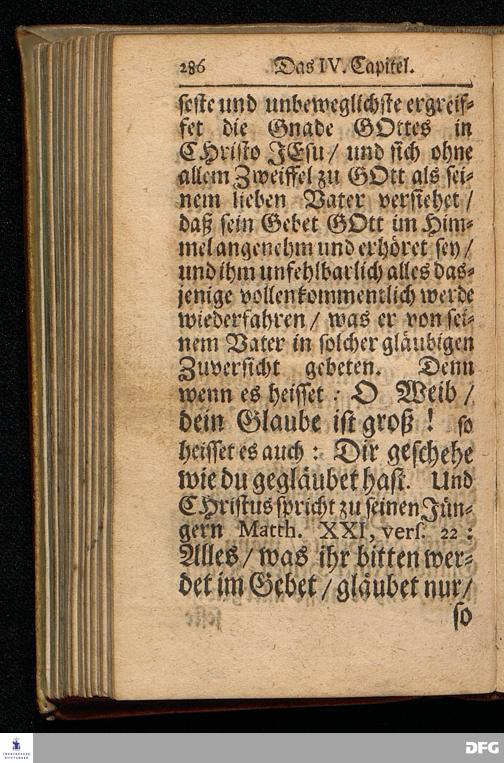 286 Das IV. Capitel.
feste und unbeweglichste ergreif-
fet die Gnade GOttes in
CHristo JEsu / und sich ohne
allem Zweiffel zu GOtt als sei-
nem lieben Vater versiehet /
daß sein Gebet GOtt im Him-
mel angenehm und erhöret sey /
und ihm unfehlbarlich alles das-
jenige vollenkommentlich werde
wiederfahren / was er von sei-
nem Vater in solcher gläubigen
Zuversicht gebeten. Denn
wenn es heisset: O Weib /
dein Glaube ist groß! so
heisset es auch: Dir geschehe
wie du gegläubet hast. Und
CHristus spricht zu seinen Jün-
gern Matth. XXI, vers. 22:
Alles / was ihr bitten wer-
det im Gebet / gläubet nur /
so
FRANCKESCHE STIFTUNGEN
DFG